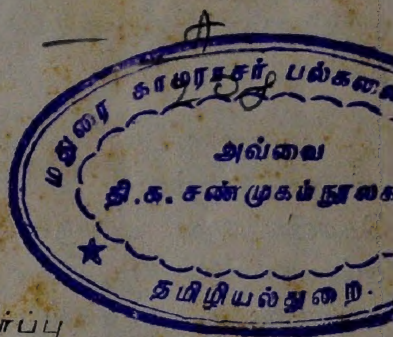 மதுரை காமராசர் பல்கலை
அவ்வை
தி.க. சண்முகம் நூலக
தமிழியல்துறை.
ர்ப்பு